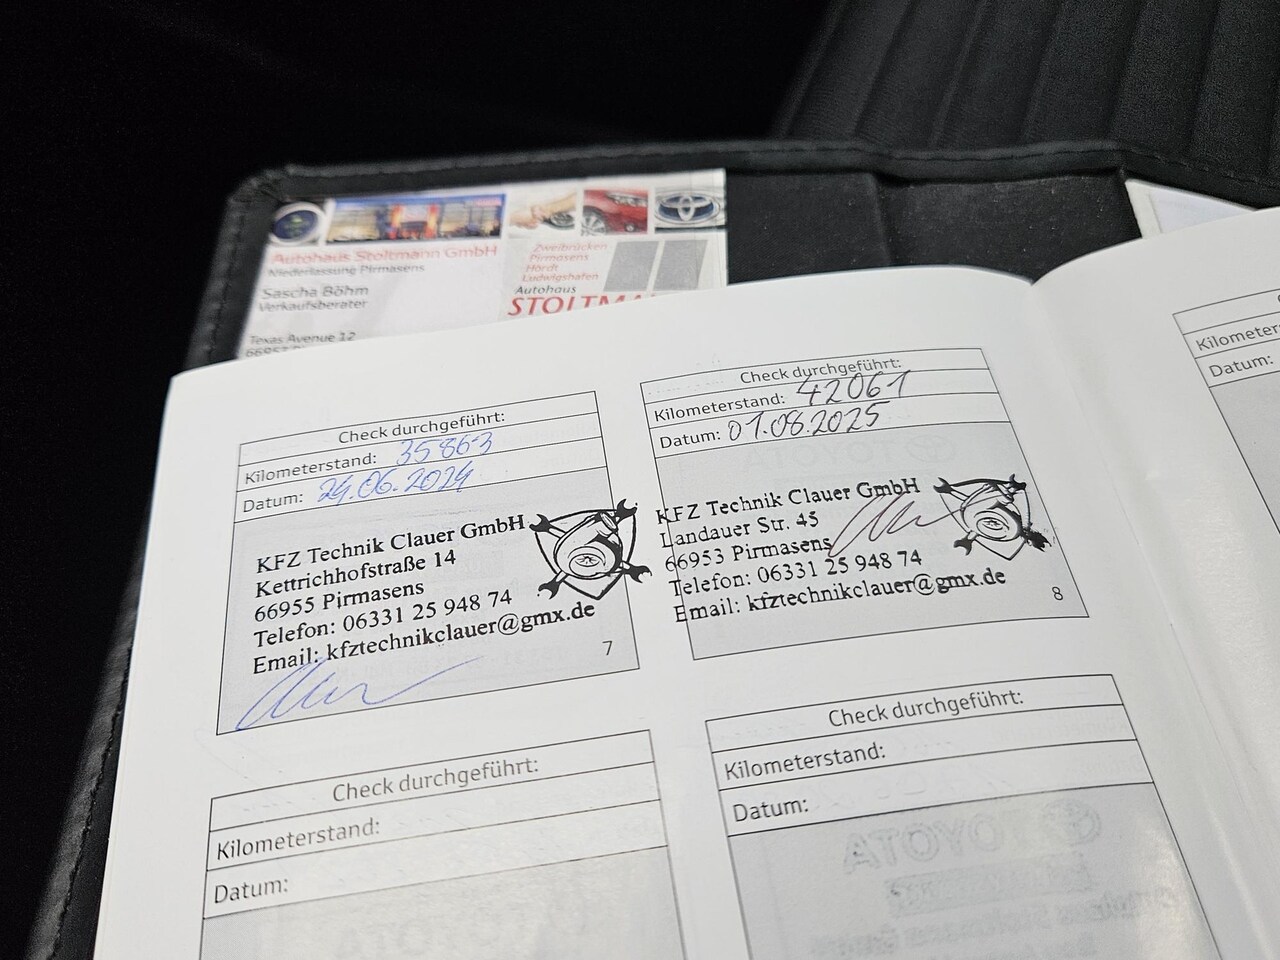 Autohaus Stoltmann GmbH
Niederlassung Pirmasens
Sascha Böhm
Verkaufsberater
Texas Avenue 12
Zweibrücken
Pirmasens
Hördt
Ludwigshafen
Autohaus
Check durchgeführt:
Kilometerstand: 35863
Datum: 24.06.2024
KFZ Technik Clauer GmbH
Kettrichhofstraße 14
66955 Pirmasens
Telefon: 06331 25 948 74
Email: kfztechnikclauer@gmx.de
7
Check durchgeführt:
Kilometerstand: 42061
Datum: 01.08.2025
KFZ Technik Clauer GmbH
Landauer Str. 45
66953 Pirmasens
Telefon: 06331 25 948 74
Email: kfztechnikclauer@gmx.de
8
Check durchgeführt:
Kilometerstand:
Datum:
Check durchgeführt:
Kilometerstand:
Datum:
TOYOTA
Datum: